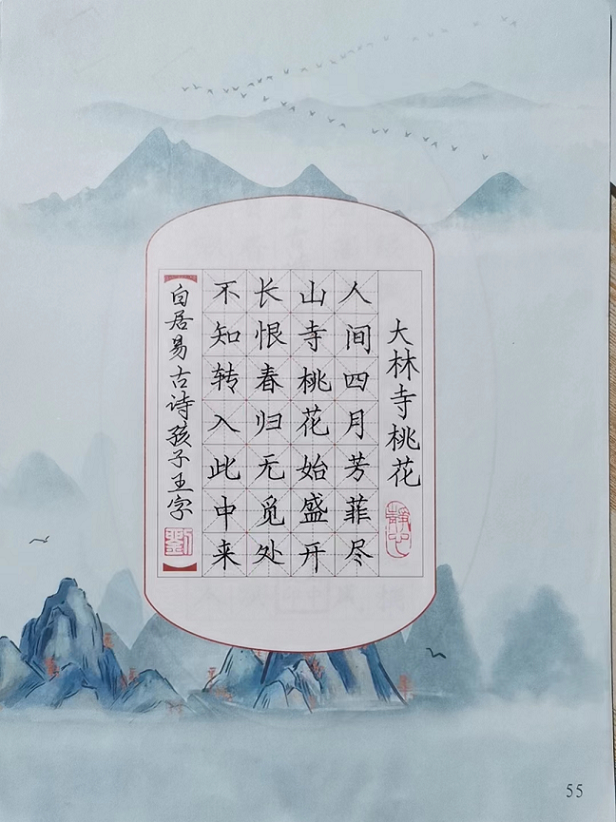 大林寺桃花
静心
人间四月芳菲尽
山寺桃花始盛开
长恨春归无觅处
不知转入此中来
白居易古诗孩子王字
劉
55